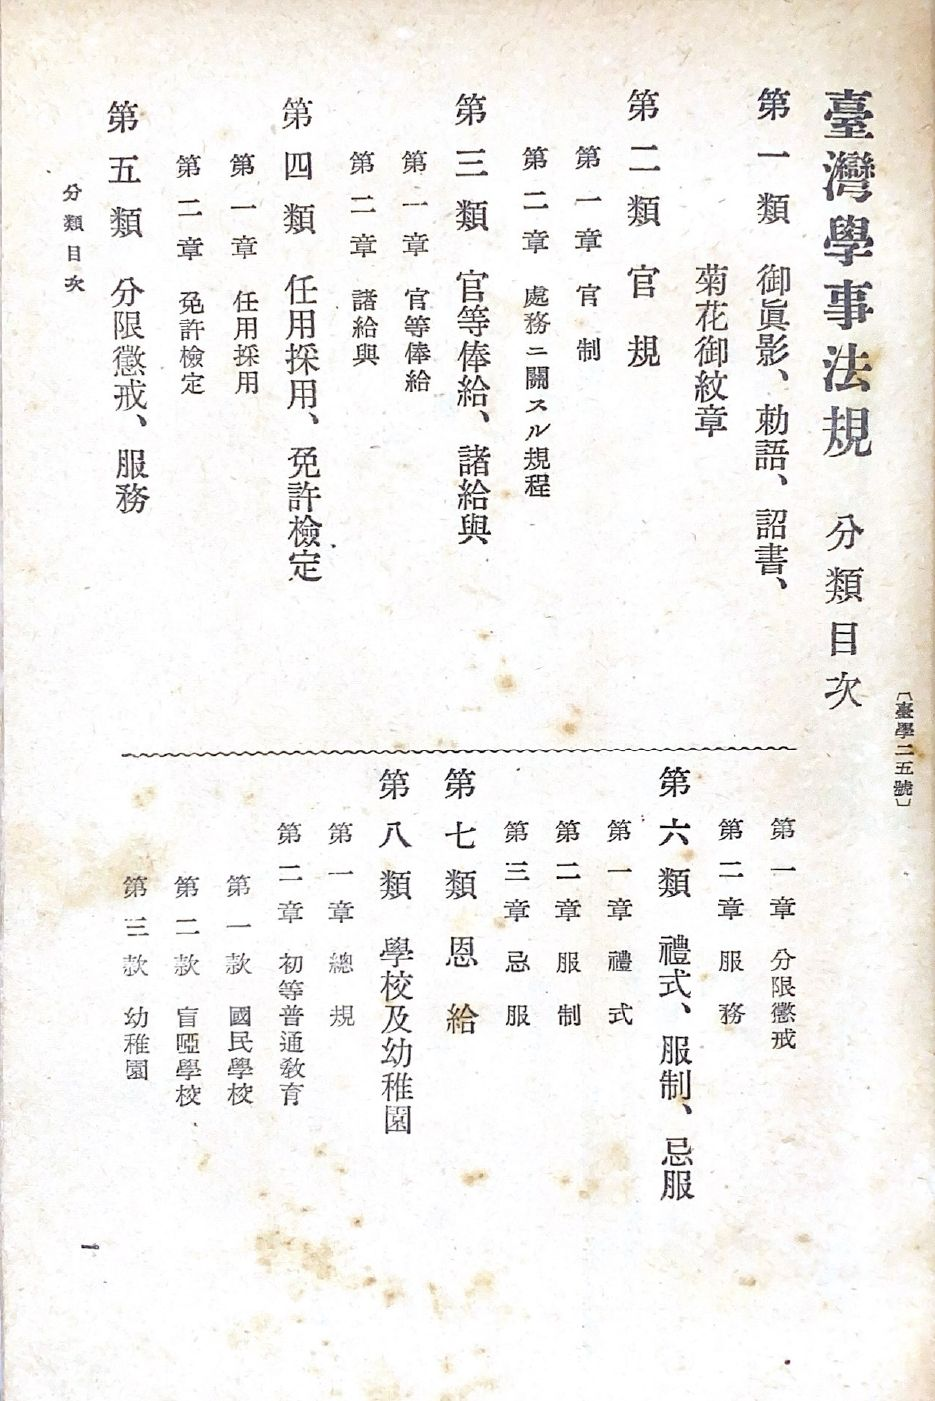 臺灣學事法規　分類目次
〔臺學二五號〕
第一類　御眞影、勅語、詔書、
菊花御紋章
第二類　官規
第一章　官制
第二章　處務ニ關スル規程
第三類　官等俸給、諸給與
第一章　官等俸給
第二章　諸給與
第四類　任用採用、免許檢定
第一章　任用採用
第二章　免許檢定
第五類　分限懲戒、服務
第一章　分限懲戒
第二章　服務
第六類　禮式、服制、忌服
第一章　禮式
第二章　服制
第三章　忌服
第七類　恩給
第八類　學校及幼稚園
第一章　總規
第二章　初等普通敎育
第一款　國民學校
第二款　盲啞學校
第三款　幼稚園
分類目次
一